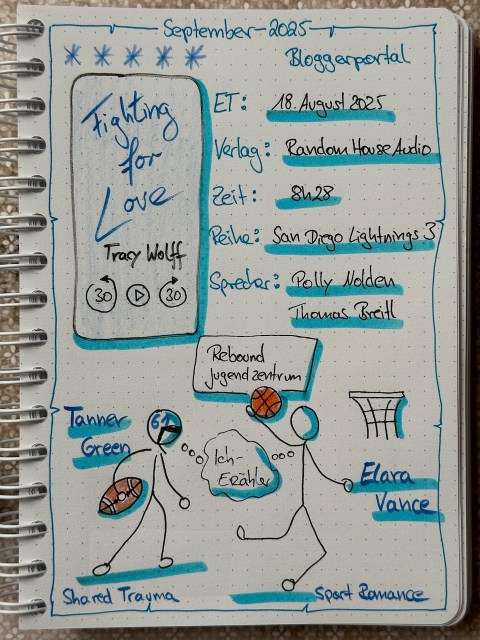 September-2025
Bloggerportal
Fighting
for
Love
Tracy Wolff
30 30
ET: 18. August 2025
Verlag: Random House Audio
Zeit: 8h28
Reihe: San Diego Lightnings 3
Sprecher: Polly Nolden
Thomas Breitl
Rebound
Jugendzentrum
Tanner
Green
61
Ich-
Erzähler
Elara
Vance
Shared Trauma
Sport Romance